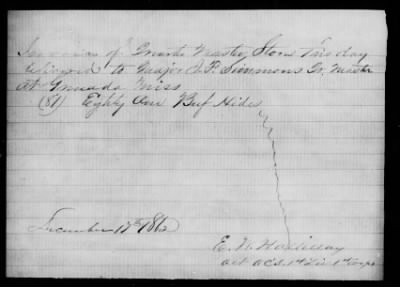 Invoice of Quarter Master Stores This day
delivered to Major J. P. Simmons Qr. Master
At Grenada Miss
(81) Eighty One Beef Hides
December 17th 1862
E. W. Halliday
Act A.C.S. 1st Div 1st Corps